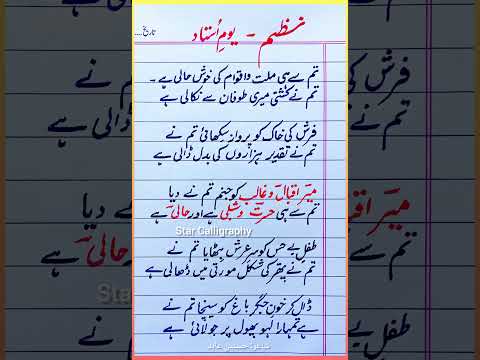 نظم - یومِ اُستاد
تاریخ ....
تم سے ہی ملت و اقوام کی خوش حالی ہے ۔
تم نے کشتی میری طوفان سے نکالی ہے
فرش کی خاک کو پرواز سکھائی تم نے
تم نے تقدیر ہزاروں کی بدل ڈالی ہے
میر اقبال و غالب کو جنم تم نے دیا
تم سے ہی حسرت و شبلی ہے اور حالی ہے
Star Calligraphy
طفلِ بے حس کو سرِ عرش بٹھایا تم نے
تم نے پتھر کی شکل مورتی میں ڈھالی ہے
ڈال کر خونِ جگر باغ کو سینچا تم نے
ہے تمہارا لہو پھول پر جو لالی ہے